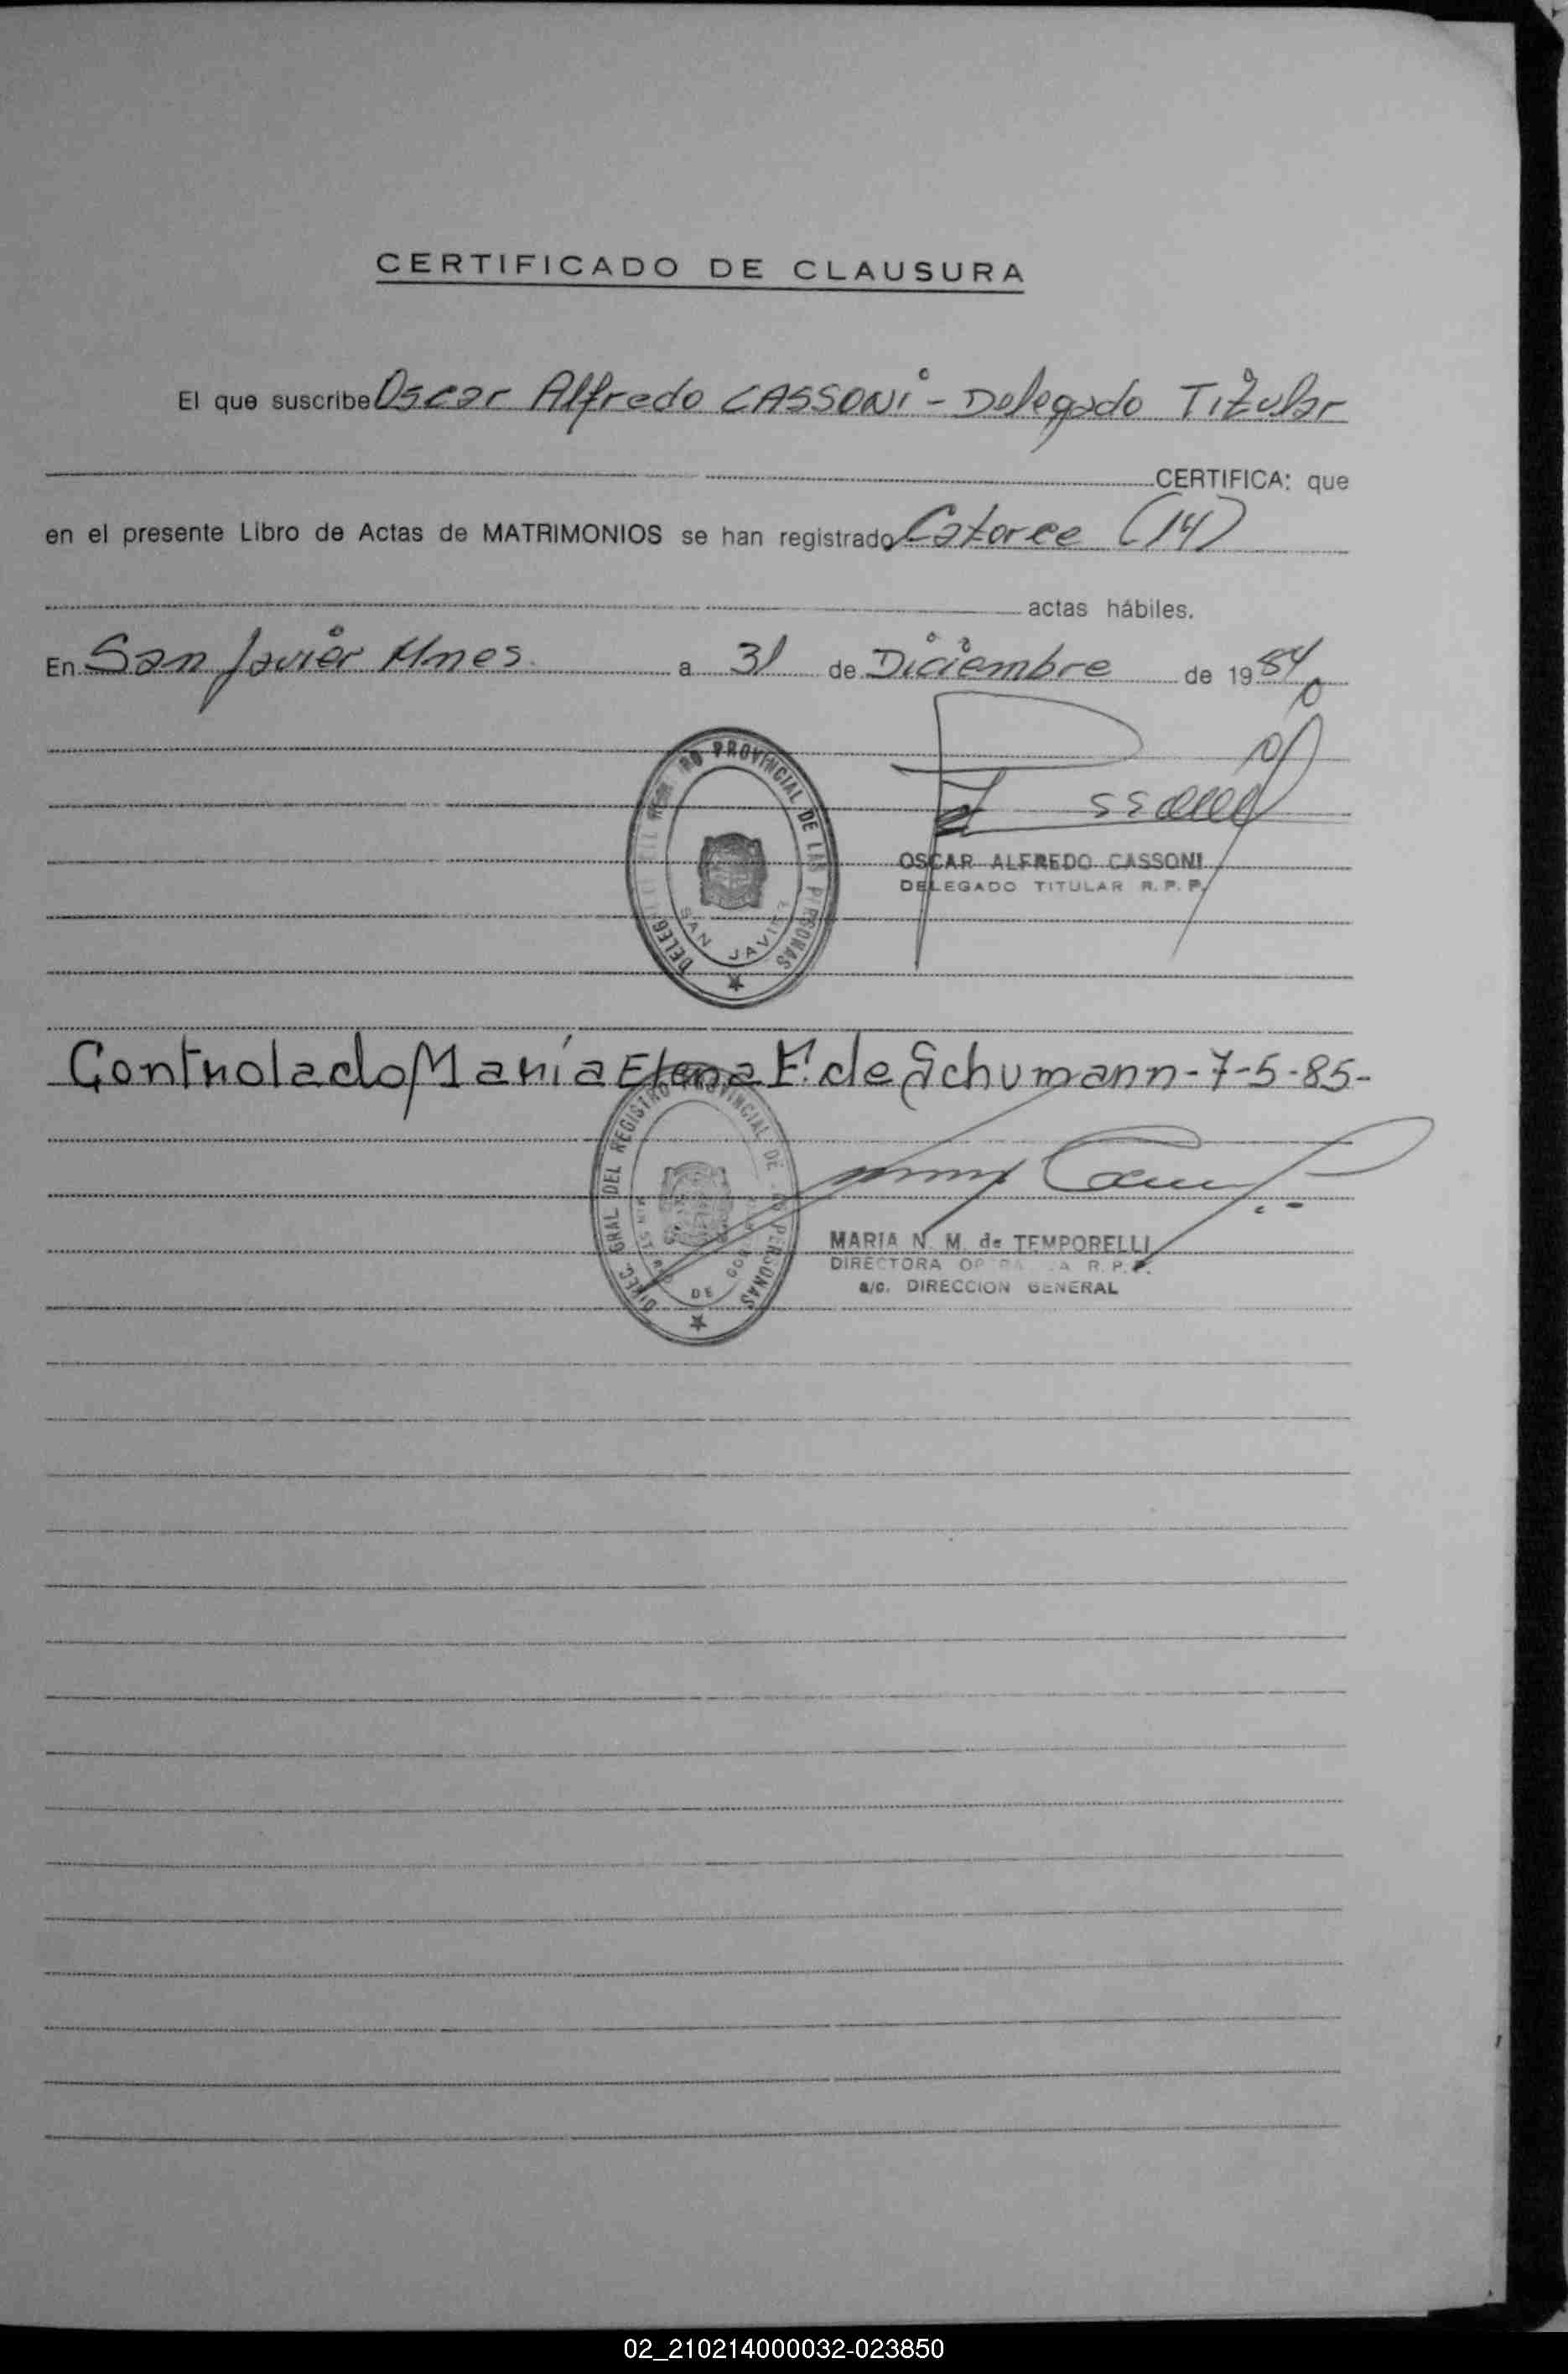 CERTIFICADO DE CLAUSURA
El que suscribe Oscar Alfredo CASSONi - Delegado Titular
CERTIFICA: que
en el presente Libro de Actas de MATRIMONIOS se han registrado Catorce (14)
actas hábiles.
En San Javier Mnes. a 31 de Diciembre de 1984
PROVINCIAL DE LAS PERSONAS
SAN JAVIER
OSCAR ALFREDO CASSONI
DELEGADO TITULAR R. P. P.
Controlado María Elena F. de Schumann - 7-5-85-
DIREC. GRAL DEL REGISTRO PROVINCIAL DE PERSONAS
DE
MARIA N. M. de TEMPORELLI
DIRECTORA R. P. P.
a/c. DIRECCION GENERAL
02_210214000032-023850